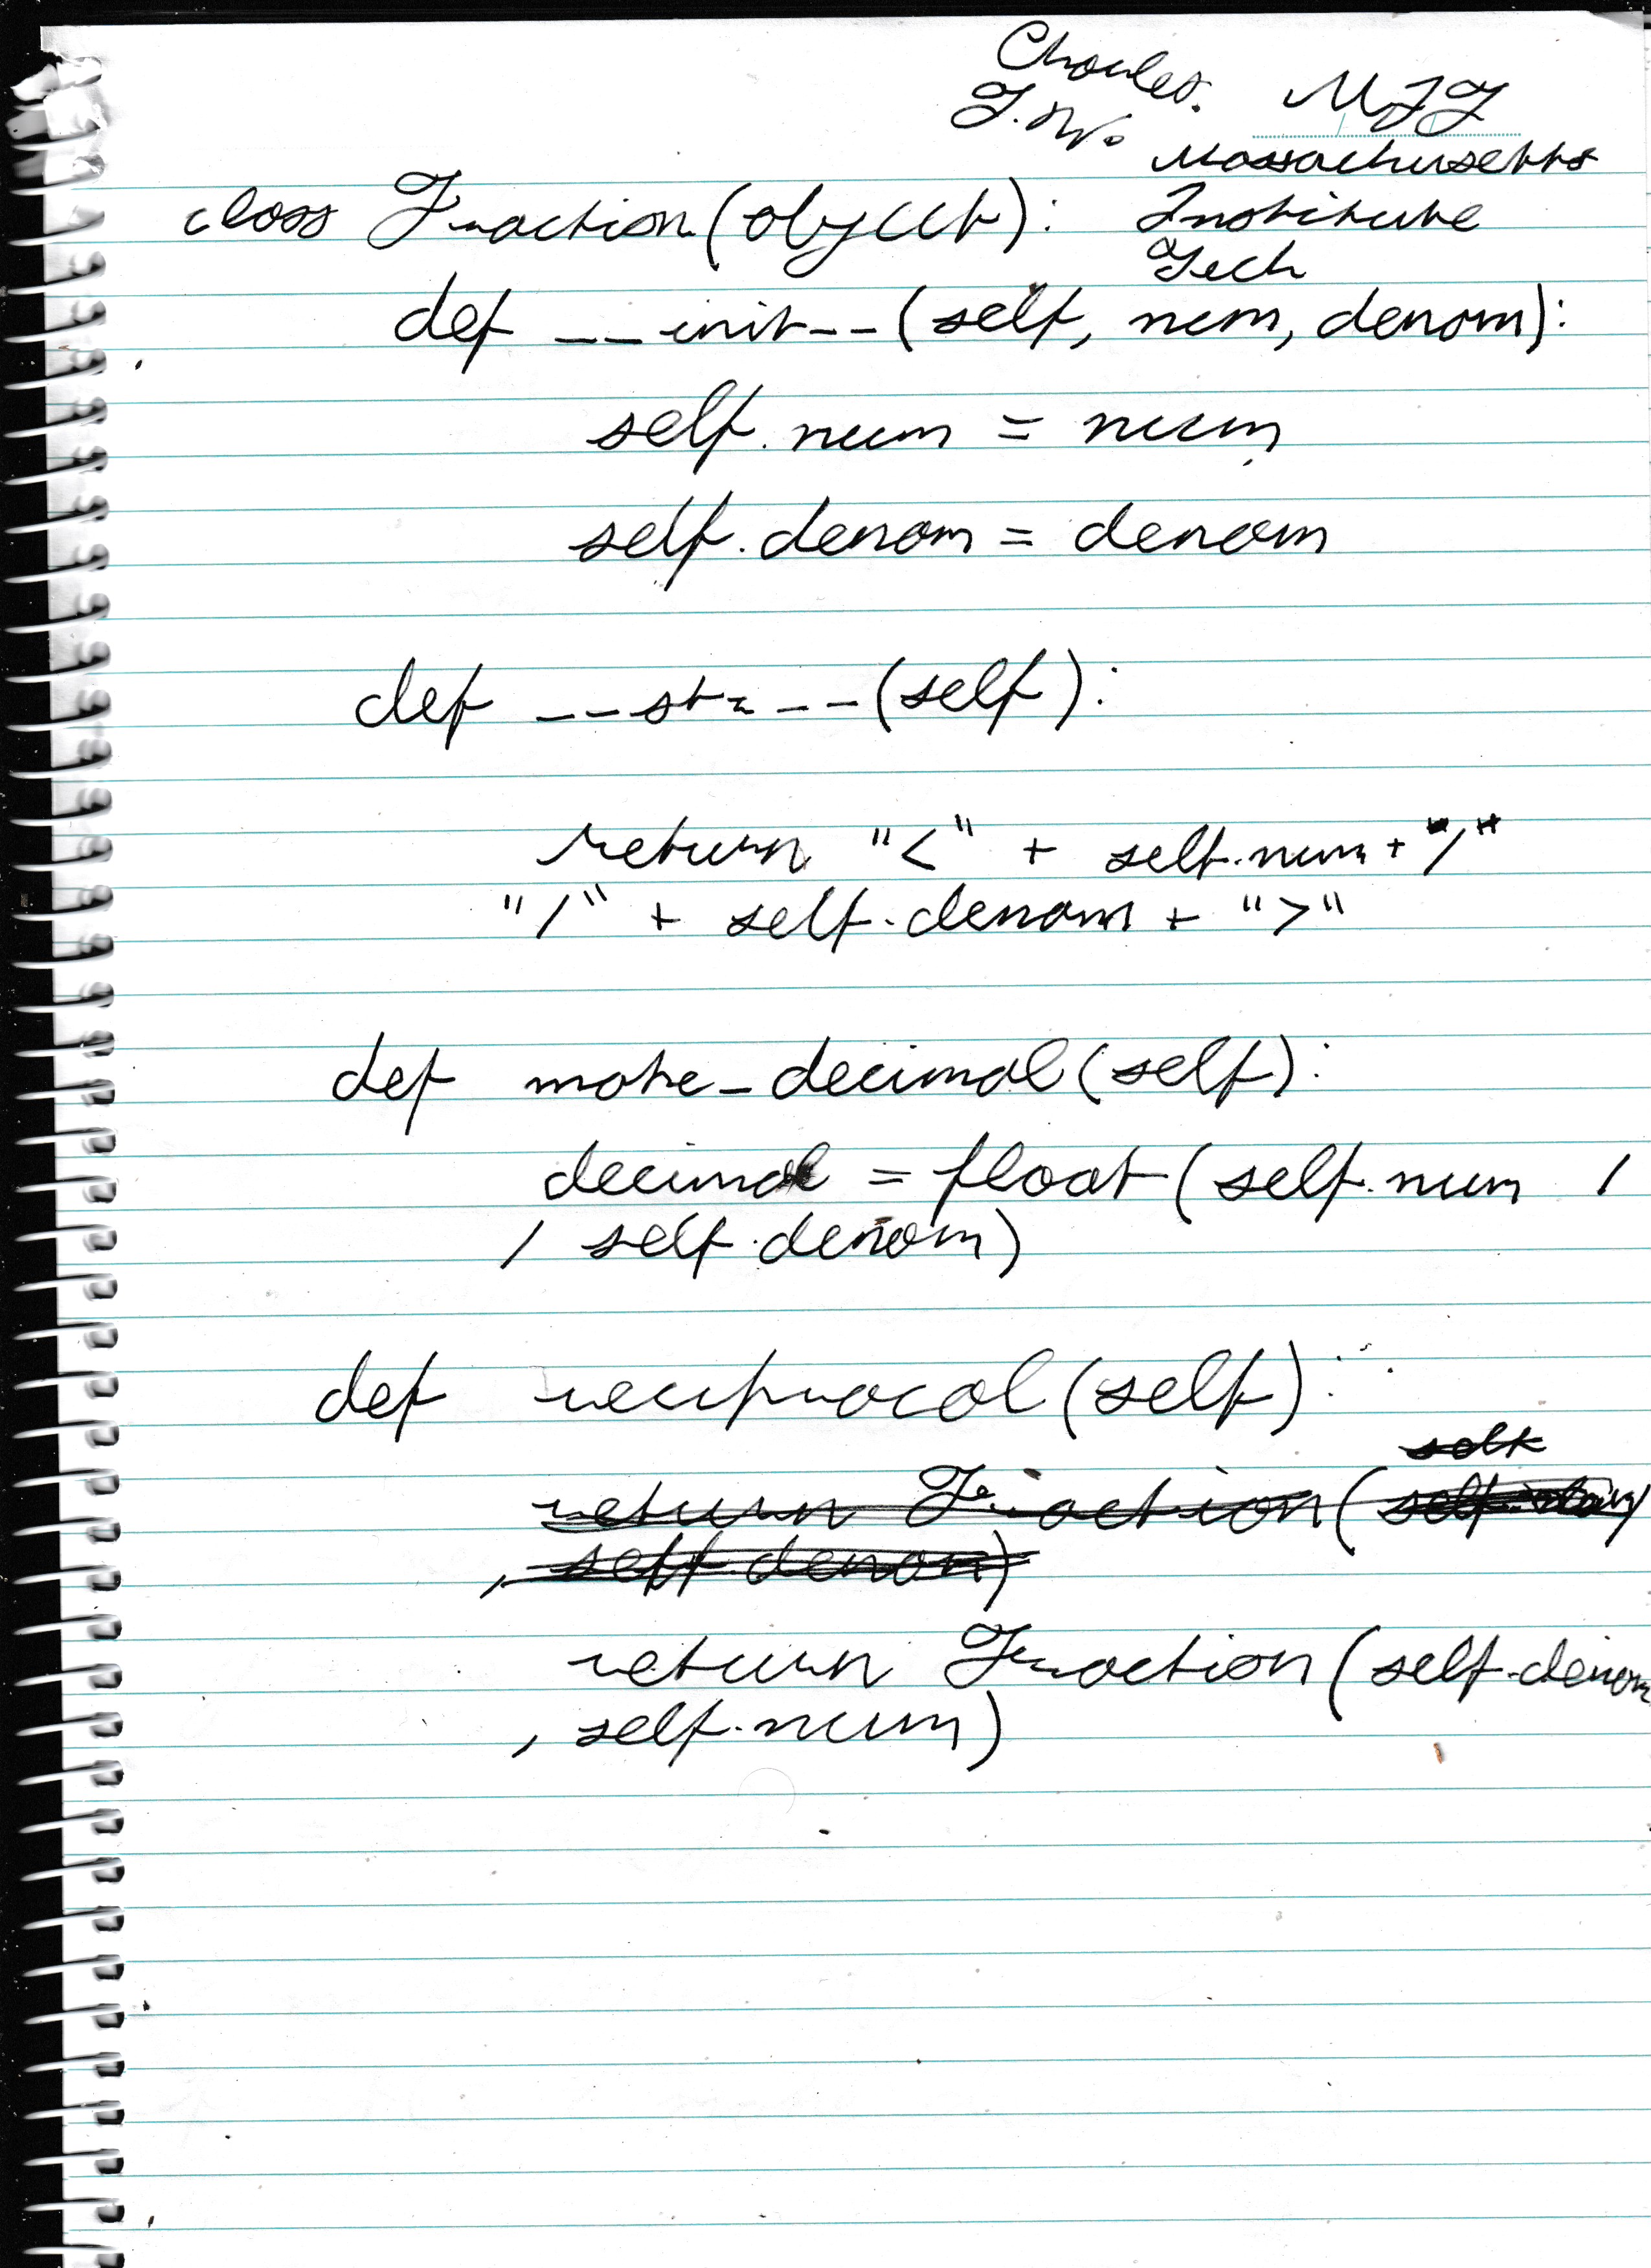 Charles. MIT
T.W. Massachusetts
class Fraction(object): Institute
Tech
def __init__(self, num, denom):
self.num = num
self.denom = denom
def __str__(self):
return "<" + self.num + "/"
"/" + self.denom + ">"
def make_decimal(self):
decimal = float(self.num /
/ self.denom)
def reciprocal(self):
self
return Fraction(self
, self.denom)
return Fraction(self.denom
, self.num)